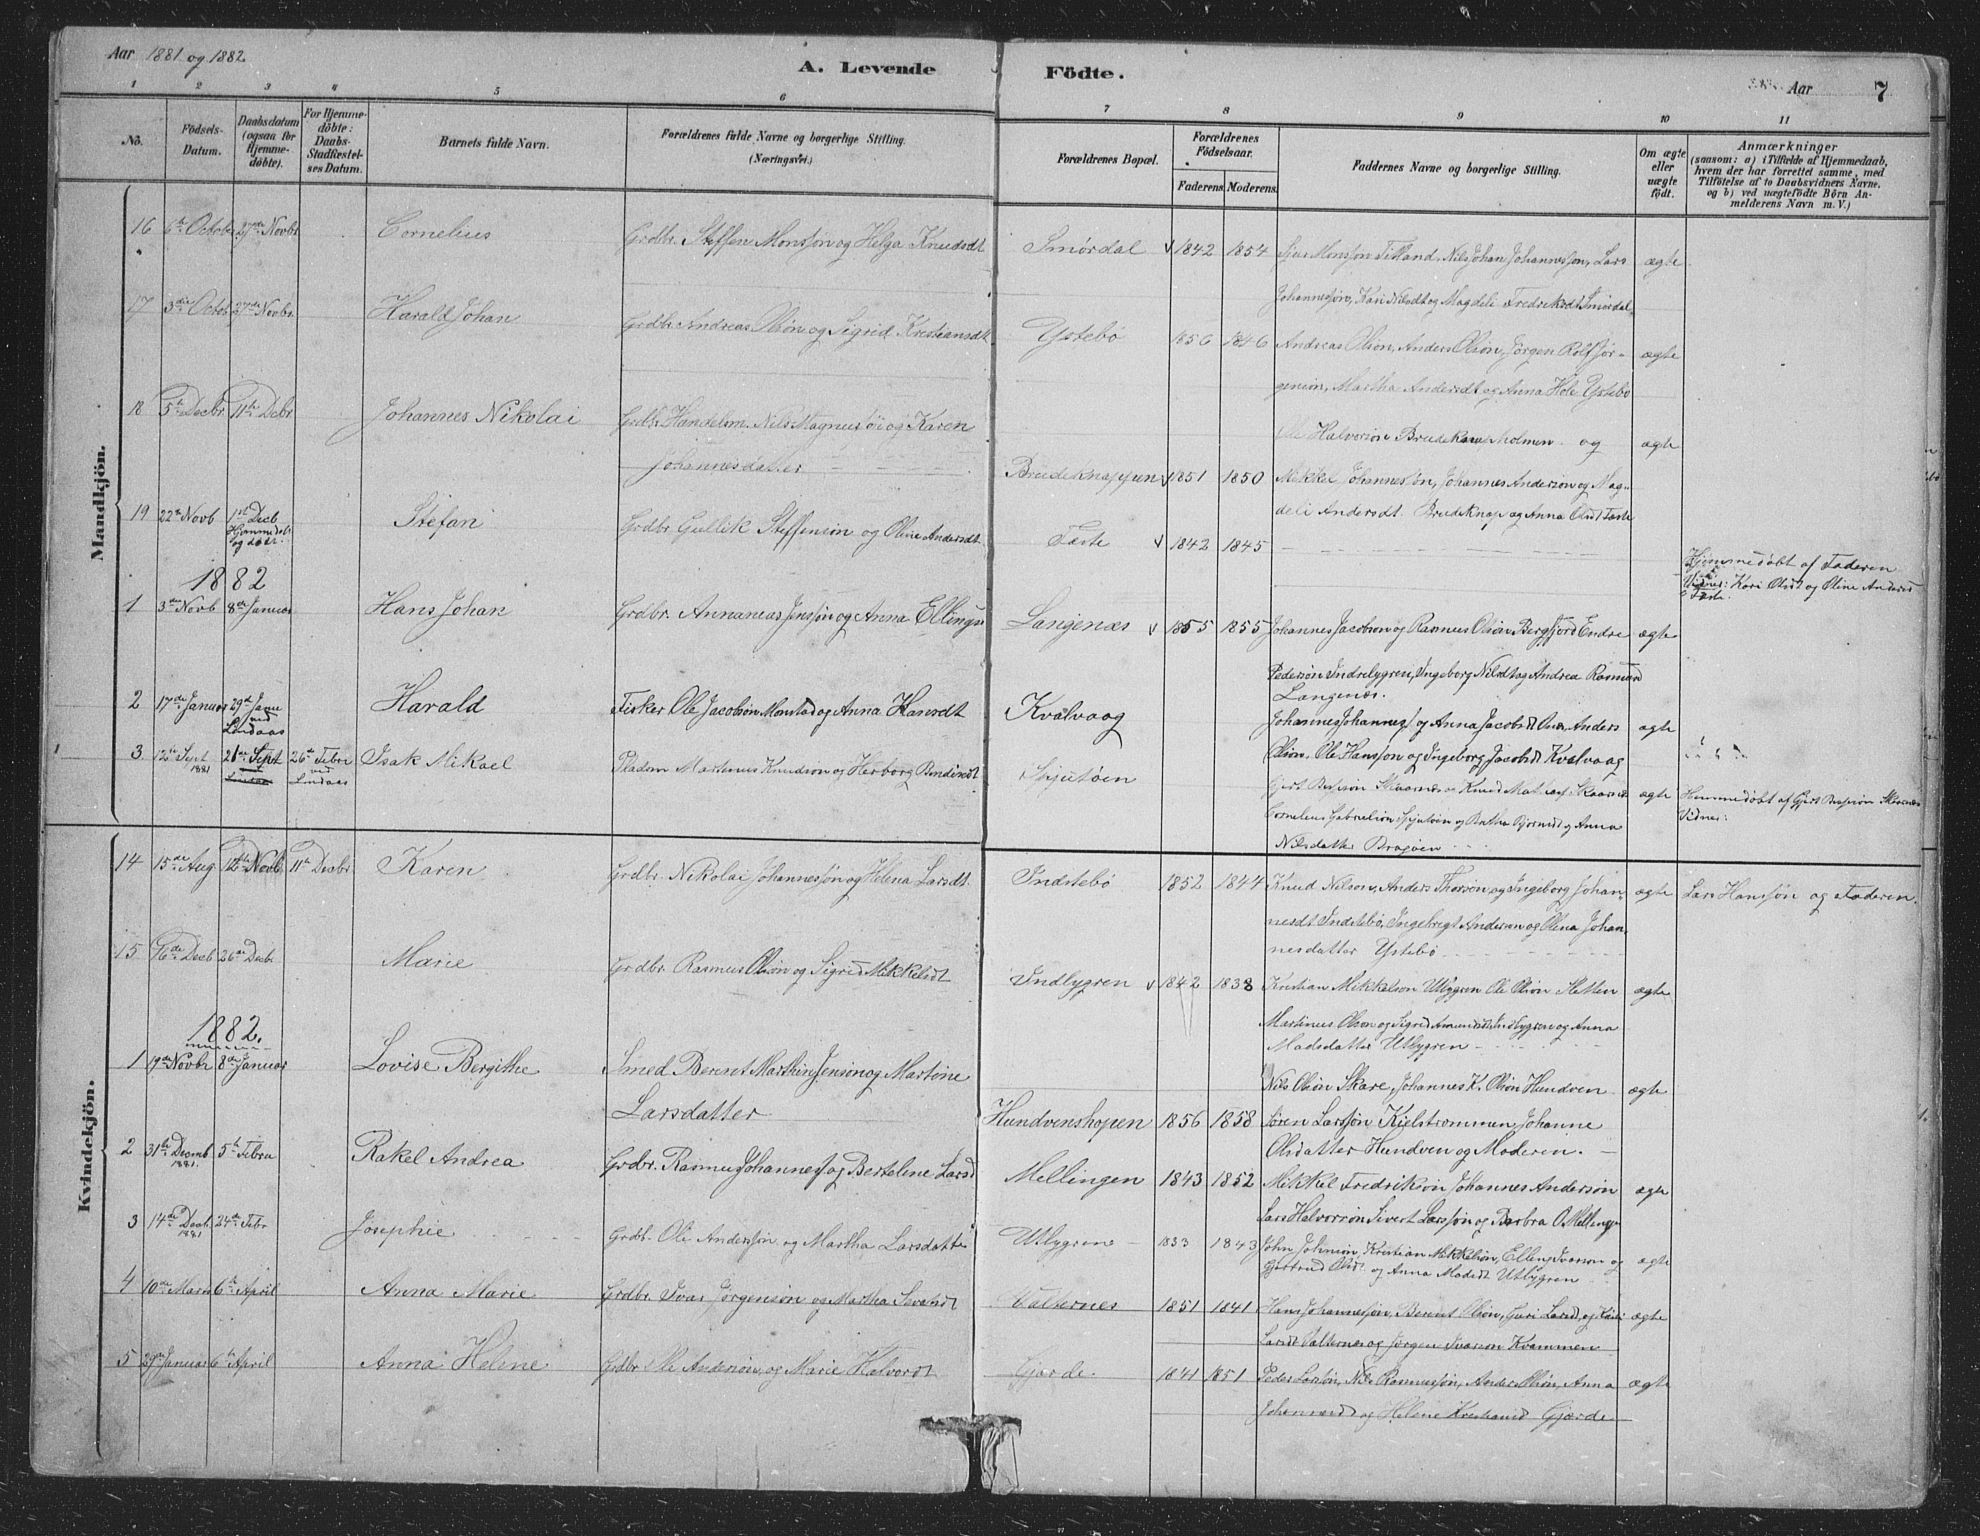 Aar 1881 og 1882
A. Levende Födte.
Aar 7
1 2 3 4 5 6 7 8 9 10 11
No.
Födsels-Datum.
Daabsdatum (ogsaa for Hjemme-döbte).
For Hjemme-döbte: Daabs-Stadfæstel-ses Datum.
Barnets fulde Navn.
Forældrenes fulde Navne og borgerlige Stilling. (Næringsvei.)
Forældrenes Bopæl.
Forældrenes Födselsaar.
Faderens. Moderens.
Faddernes Navne og borgerlige Stilling.
Om ægte eller uægte födt.
Anmærkninger
(saasom: a) i Tilfælde af Hjemmedaab, hvem der har forrettet samme, med Tilföielse af to Daabsvidners Navne, og b) ved uægtefödte Börn An-melderens Navn m. V.)
Mandkjön.
16 6te October 27de Novbr Cornelius Grdbr. Steffen Monssøn og Helga Knudsdt Smørdal 1842 1854 Monssøn Titland, Nils Johan Johannessøn, Lars ægte
Johannessøn, Kari Nilsdt og Magdeli Fredriksdt Smørdal
17 3die Octob 27de Novbr. Harald Johan Grdbr. Andreas Olsøn og Sigrid Kristiansdt Ystebö 1856 1846 Andreas Olsøn, Anders Olsøn, Jørgen Rolf Jør- ægte
gensøn, Martha Andersdt og Anna Hole Ystebö
18 5te Decbr 11te Dcbr Johannes Nikolai Grdbr. Handelsm. Nils Magnussøn og Karen
Johannesdatter
Ole Halvorsøn Brudeknapholmen og ægte
Brudeknappen 1851 1850 Mikkel Johannessøn, Johannes Andersøn og Mag-
deli Andersdt. Brudeknap og Anna Olsdt Feste
19 22de Novb 1ste Decb Hjemmedøbt og død Stefan Grdbr Gullik Steffensøn og Oline Andersdt. Feste 1842 1845
Hjemmedøbt af Faderen
Vidner: Kari Olsdt og Oline Andersdt
Feste
1882
1 3die Novb 8de Januar Hans Johan Grdbr. Annaneas Jenssøn og Anna Ellingsd Langenæs 1855 1855 Johannes Jacobsøn og Rasmus Olsøn Bergfjord Endre ægte
Pedersøn Indrelygren, Ingeborg Nilsdt og Andrea Rasmusd
Langenæs.
2 17de Januar 29de Janu ved Lindaas Harald Fisker Ole Jacobsøn Monstad og Anna Hansdt Kvalvaag Johannes Johannes og Anna Jacobsdt Anders ægte
Olsøn, Ole Hanssøn og Ingeborg Jacobsdt Kvalvaag
3 12te Sept 1881 21de Sept Lindaas 26de Febr ved Lindaas Isak Mikael Pladsm Martenus Knudsøn og Herborg Bendixsdt Spjutöen Gjert Skaarnæs Knud Skaarnæs ægte Hemmedøbt af Gjert Skaarnæs
Cornelius Gabrielsøn Spjutöen og og Anna Vidner:
Nilsdatter
Kvindekjön.
14 15de Aug 12te Novb 11te Decbr Karen Grdbr. Nikolai Johannessøn og Helena Larsdt. Indstebö 1852 1844 Knud Nilsøn, Anders Thorsøn og Ingeborg Johan- ægte Lars Hanssøn og Faderen.
nesdt Indstebö, Ingebregt Andersøn og Olena Johan-
nesdatter Ystebö
15 16de Decb 26de Decbr Marie Grdbr. Rasmus Olsøn og Sigrid Mikkelsdt Indlygren 1842 1838 Kristian Mikkelsøn Utlygren Ole Olsøn Hetten ægte
Martinus Olsøn og Sigrid Indlygren og Anna
Madsdatter Utlygren
1882.
1 19de Novbr 8de Januar Lovise Bergithe Smed Berent Marthin Jensøn og Martine
Larsdatter
Nils Olsøn Skare, Johannes K. Olsøn Hundven ægte
Hundvenshopen 1856 1858 Søren Larssøn Kielstrømmen Johanne
Olsdatter Hundven og Moderen.
2 31te Decmb 1881. 5te Febru Rakel Andrea Grdbr. Rasmus Johanness og Berteline Larsd Mellingen 1843 1852 Mikkel Fredriksøn Johannes Andersøn ægte
Lars Halvorsøn Sivert Larssøn og Barbra O. Mellingen
3 14de Decb 1881 24de Febr Josephie Grdbr. Ole Anderssøn og Martha Larsdatter Utlygren 1833 1843 John Johnsøn, Kristian Mikkelsøn, Elling Ivarsøn og ægte
Gjertrud Olsdt. og Anna Madsdt Utlygren
4 10de Marts 6te April Anna Marie Grdbr. Ivar Jørgensøn og Martha Sivertsdt Valternes 1851 1841 Hans Johannessøn, Berent Olsøn, Guri Larsd, og Kari ægte
Larsdt Valternes og Jørgen Ivarsøn Kvammen
5 29de Januar 6te April Anna Helene Grdbr Ole Andersøn, og Marie Halvorsdt Gjerde 1841 1851 Peder Larsøn, Nils Rasmussøn, Anders Olsøn, Anna ægte
Johannesd og Helene Kristiansd Gjerde